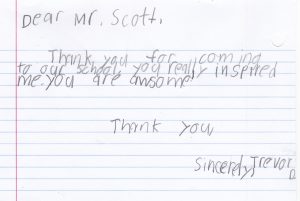 Dear Mr. Scott,
Thank you for coming
to our school you really inspered
me. you are awsome
Thank you
Sincerely, Trevor
D